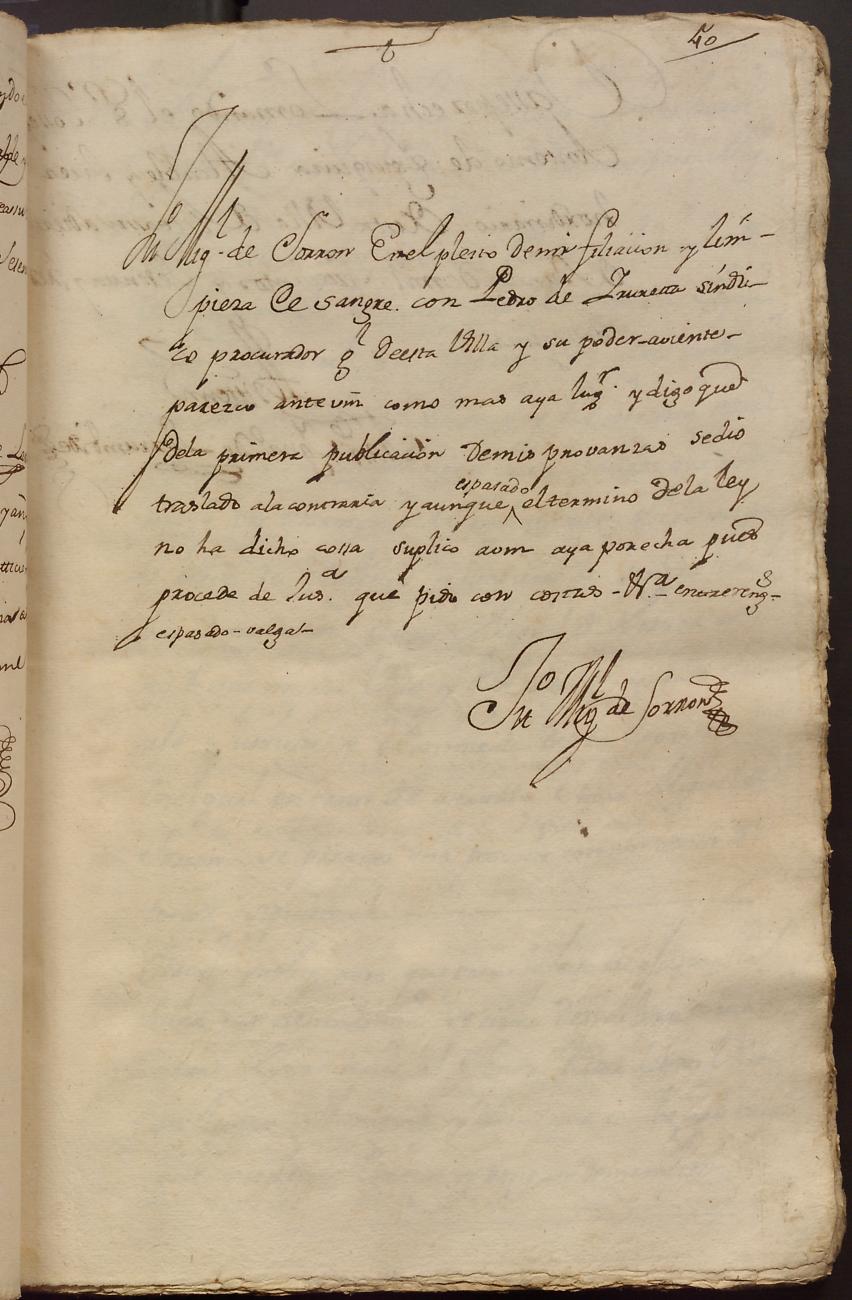 40
Jun Migl de Sorron En el pleito de mi filiacion y lim-
pieza de sangre con Pedro de Irureta sindi-
co procurador gl de esta Villa y su poder aviente
parezco ante vm como mas aya lugr y digo que
de la primera publicacion de mis provanzas se dio
traslado a la contraria y aunque espasado el termino de la ley
no ha dicho cossa suplico a vm aya por echa pues
procede de Jusa que pido con costas - entrereng-
espasado - valga -
Jun Migl de Sorron